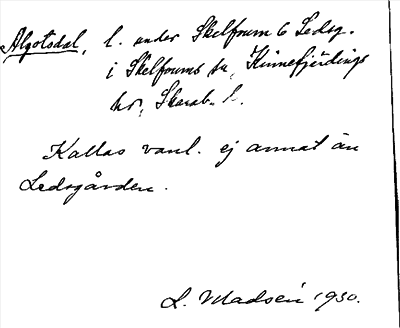 Algotsdal, l. under Skelfrum 6 Ledsg.
i Skelfrums sn, Kinnefjerdings
hd, Skarab. l.
Kallas vanl. ej annat än
Ledsgården.
L. Madsén 1930.